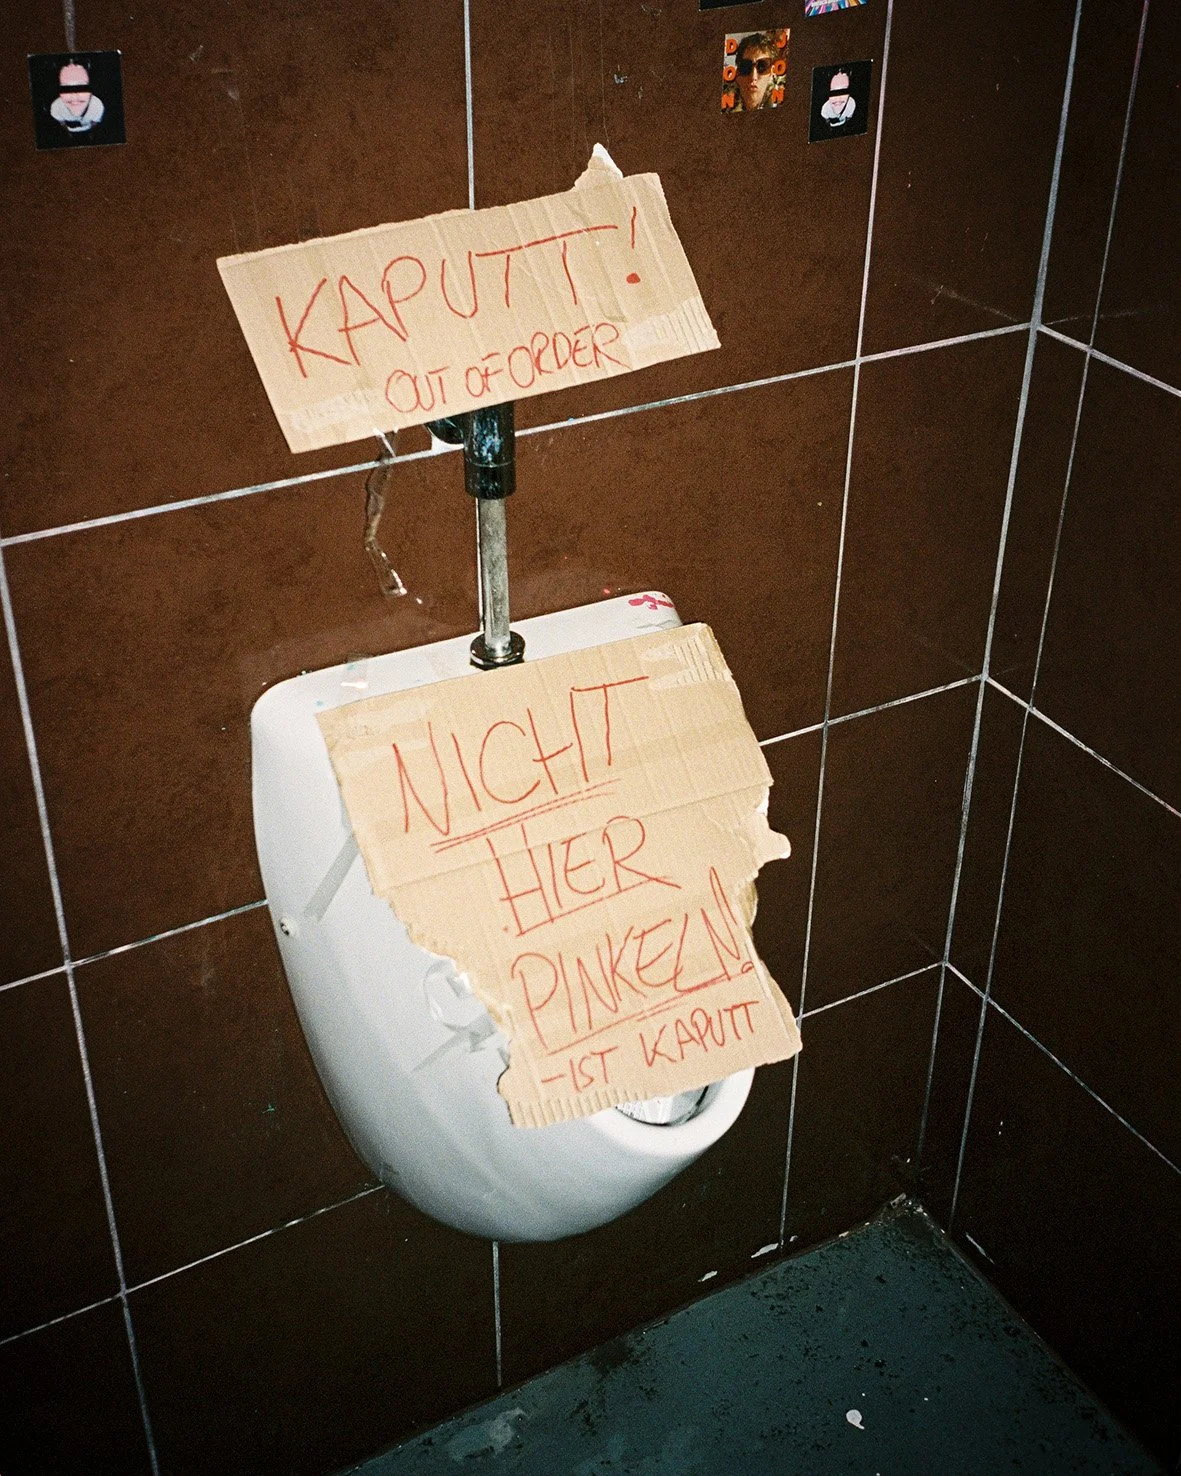 KAPUTT!
OUT OF ORDER
NICHT
HIER
PINKELN!
-IST KAPUTT